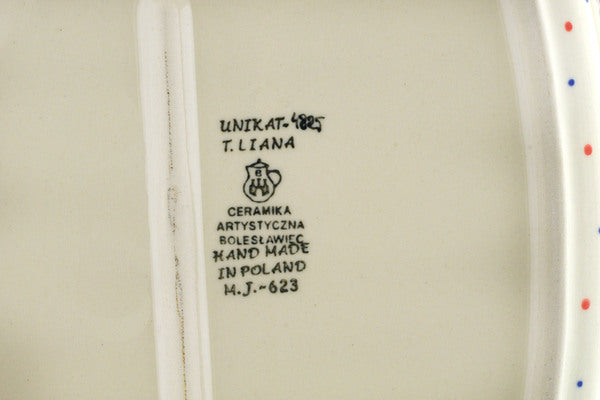 UNIKAT-4825
T. LIANA
B
CERAMIKA
ARTYSTYCZNA
BOLESŁAWIEC
HAND MADE
IN POLAND
M.J.-623